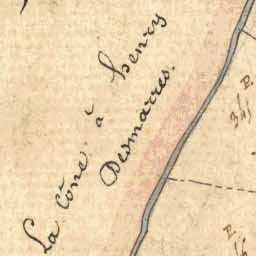 La Cône. à henry
Desmarres.